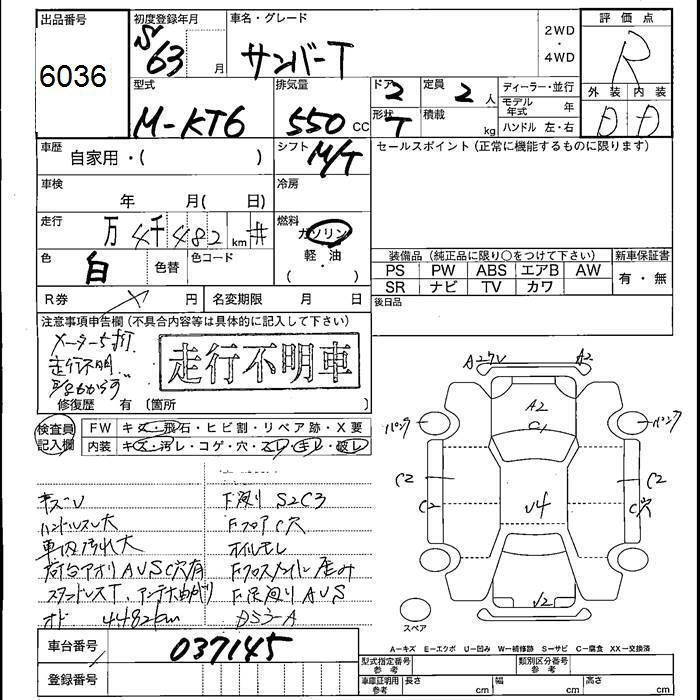 出品番号 初度登録年月 車名・グレード 2WD 評価点
6036 S63 月 サンバーT ・ R
4WD
型式 排気量 ドア 定員 ディーラー・並行 外装 内装
M-KT6 550 CC 2 2 人 モデル年式 年 D D
形状 T 積載 kg ハンドル 左・右
車歴 自家用・( ) シフト M/T セールスポイント (正常に機能するものに限ります)
車検 年 月( 日) 冷房
走行 万 4千482 km # 燃料 ガソリン
色 白 色替 色コード ・軽油( )
装備品 (純正品に限り○をつけて下さい) 新車保証書
PS PW ABS エアB AW 有・無
SR ナビ TV カワ
R券 円 名変期限 月 日 後日品
注意事項申告欄 (不具合内容等は具体的に記入して下さい)
メーター5打
走行不明 走行不明車
修復歴 有 (箇所 )
検査員記入欄 FW キズ・飛石・ヒビ割・リペア跡・X要
内装 キズ・汚レ・コゲ・穴・スレ・キレ・破レ
A2 A2
A2
C1
パンク パンク
C2 C2
C2 C穴
U4
U2
スペア
キズU F廻り S2C3
ハンドルスレ大 FフロアC穴
車内汚れ大 オイルモレ
荷台アオリAUSC穴有
オド 4482km
車台番号 037145
登録番号
A-キズ E-エクボ U-凹み W-補修跡 S-サビ C-腐食 XX-交換済
型式指定番号 参考 類別区分番号 参考
車庫証明用 参考 長さ cm 幅 cm 高さ cm